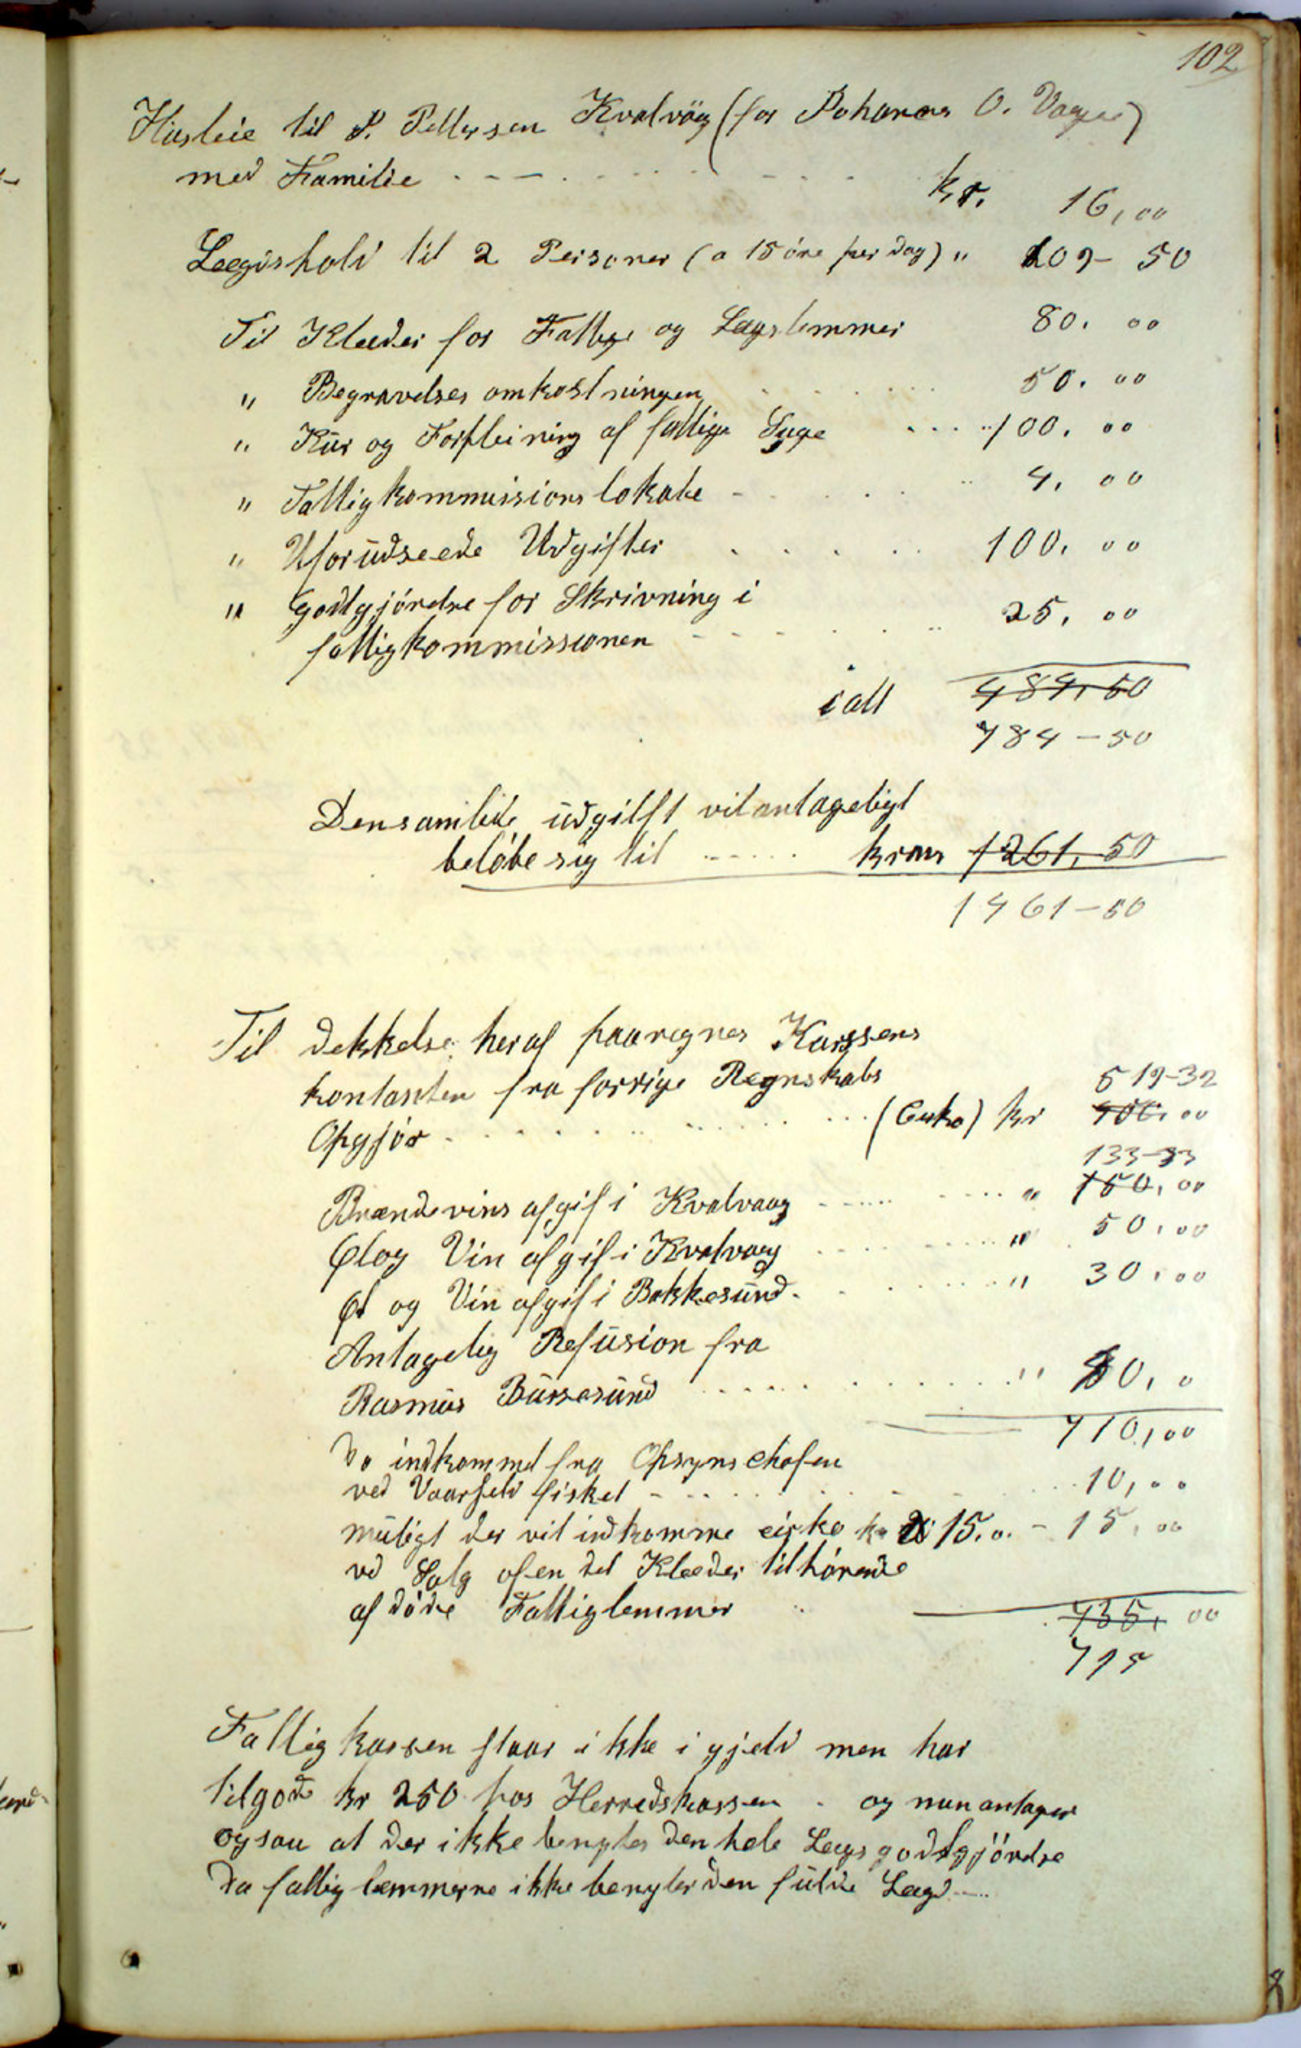 102
Husleie til P. Pettersen Kvalvåg (for Johanes O. Vagen)
med Familie - - - - - kr. 16,00
Lægdshold til 2 Personer (a 15 öre per Dag) " 109- 50
Til Klæder for Fattige og Lægslemmer 80. 00
" Begravelses omkostningen 50. 00
" Kur og Forpleining af fattige Syge 100. 00
" Fattigkommisions lokale 4. 00
" Uforudseede Udgifter 100. 00
" godtgjörelse for Skrivning i
fattigkommissionen 25. 00
i alt 484,50
484-50
Den samlede udgift vil antageligt
belöbe sig til kroner 1261,50
1461-50
Til dekkelse heraf paaregnes Kassens
kontanten fra forrige Regnskabs 519-32
Opgjör (Cirka) kr 400.00
133-33
Brændevins afgif i Kvalvaag " 150,00
Øl og Vin afgif i Kvalvaag " 50,00
Øl og Vin afgif i Bekkesund " 30,00
Antagelig Refusion fra
Rasmus Bussesund " 80,0
710,00
Do indkommet fra Opsynschefen
ved Vaarsild fisket 10,00
muligt der vil indkomme cirka kr 15.0. - 15,00
ved Salg af en del Klæder tilhörende
af döde Fattiglemmer 735,00
715
Fattigkassen staar ikke i gjeld men har
tilgode kr 250 hos Herredskassen. og man antager
ogsaa at der ikke benyttes den hele Lægs godtgjörelse
da fattiglemmerne ikke benytter den fulde Lægd